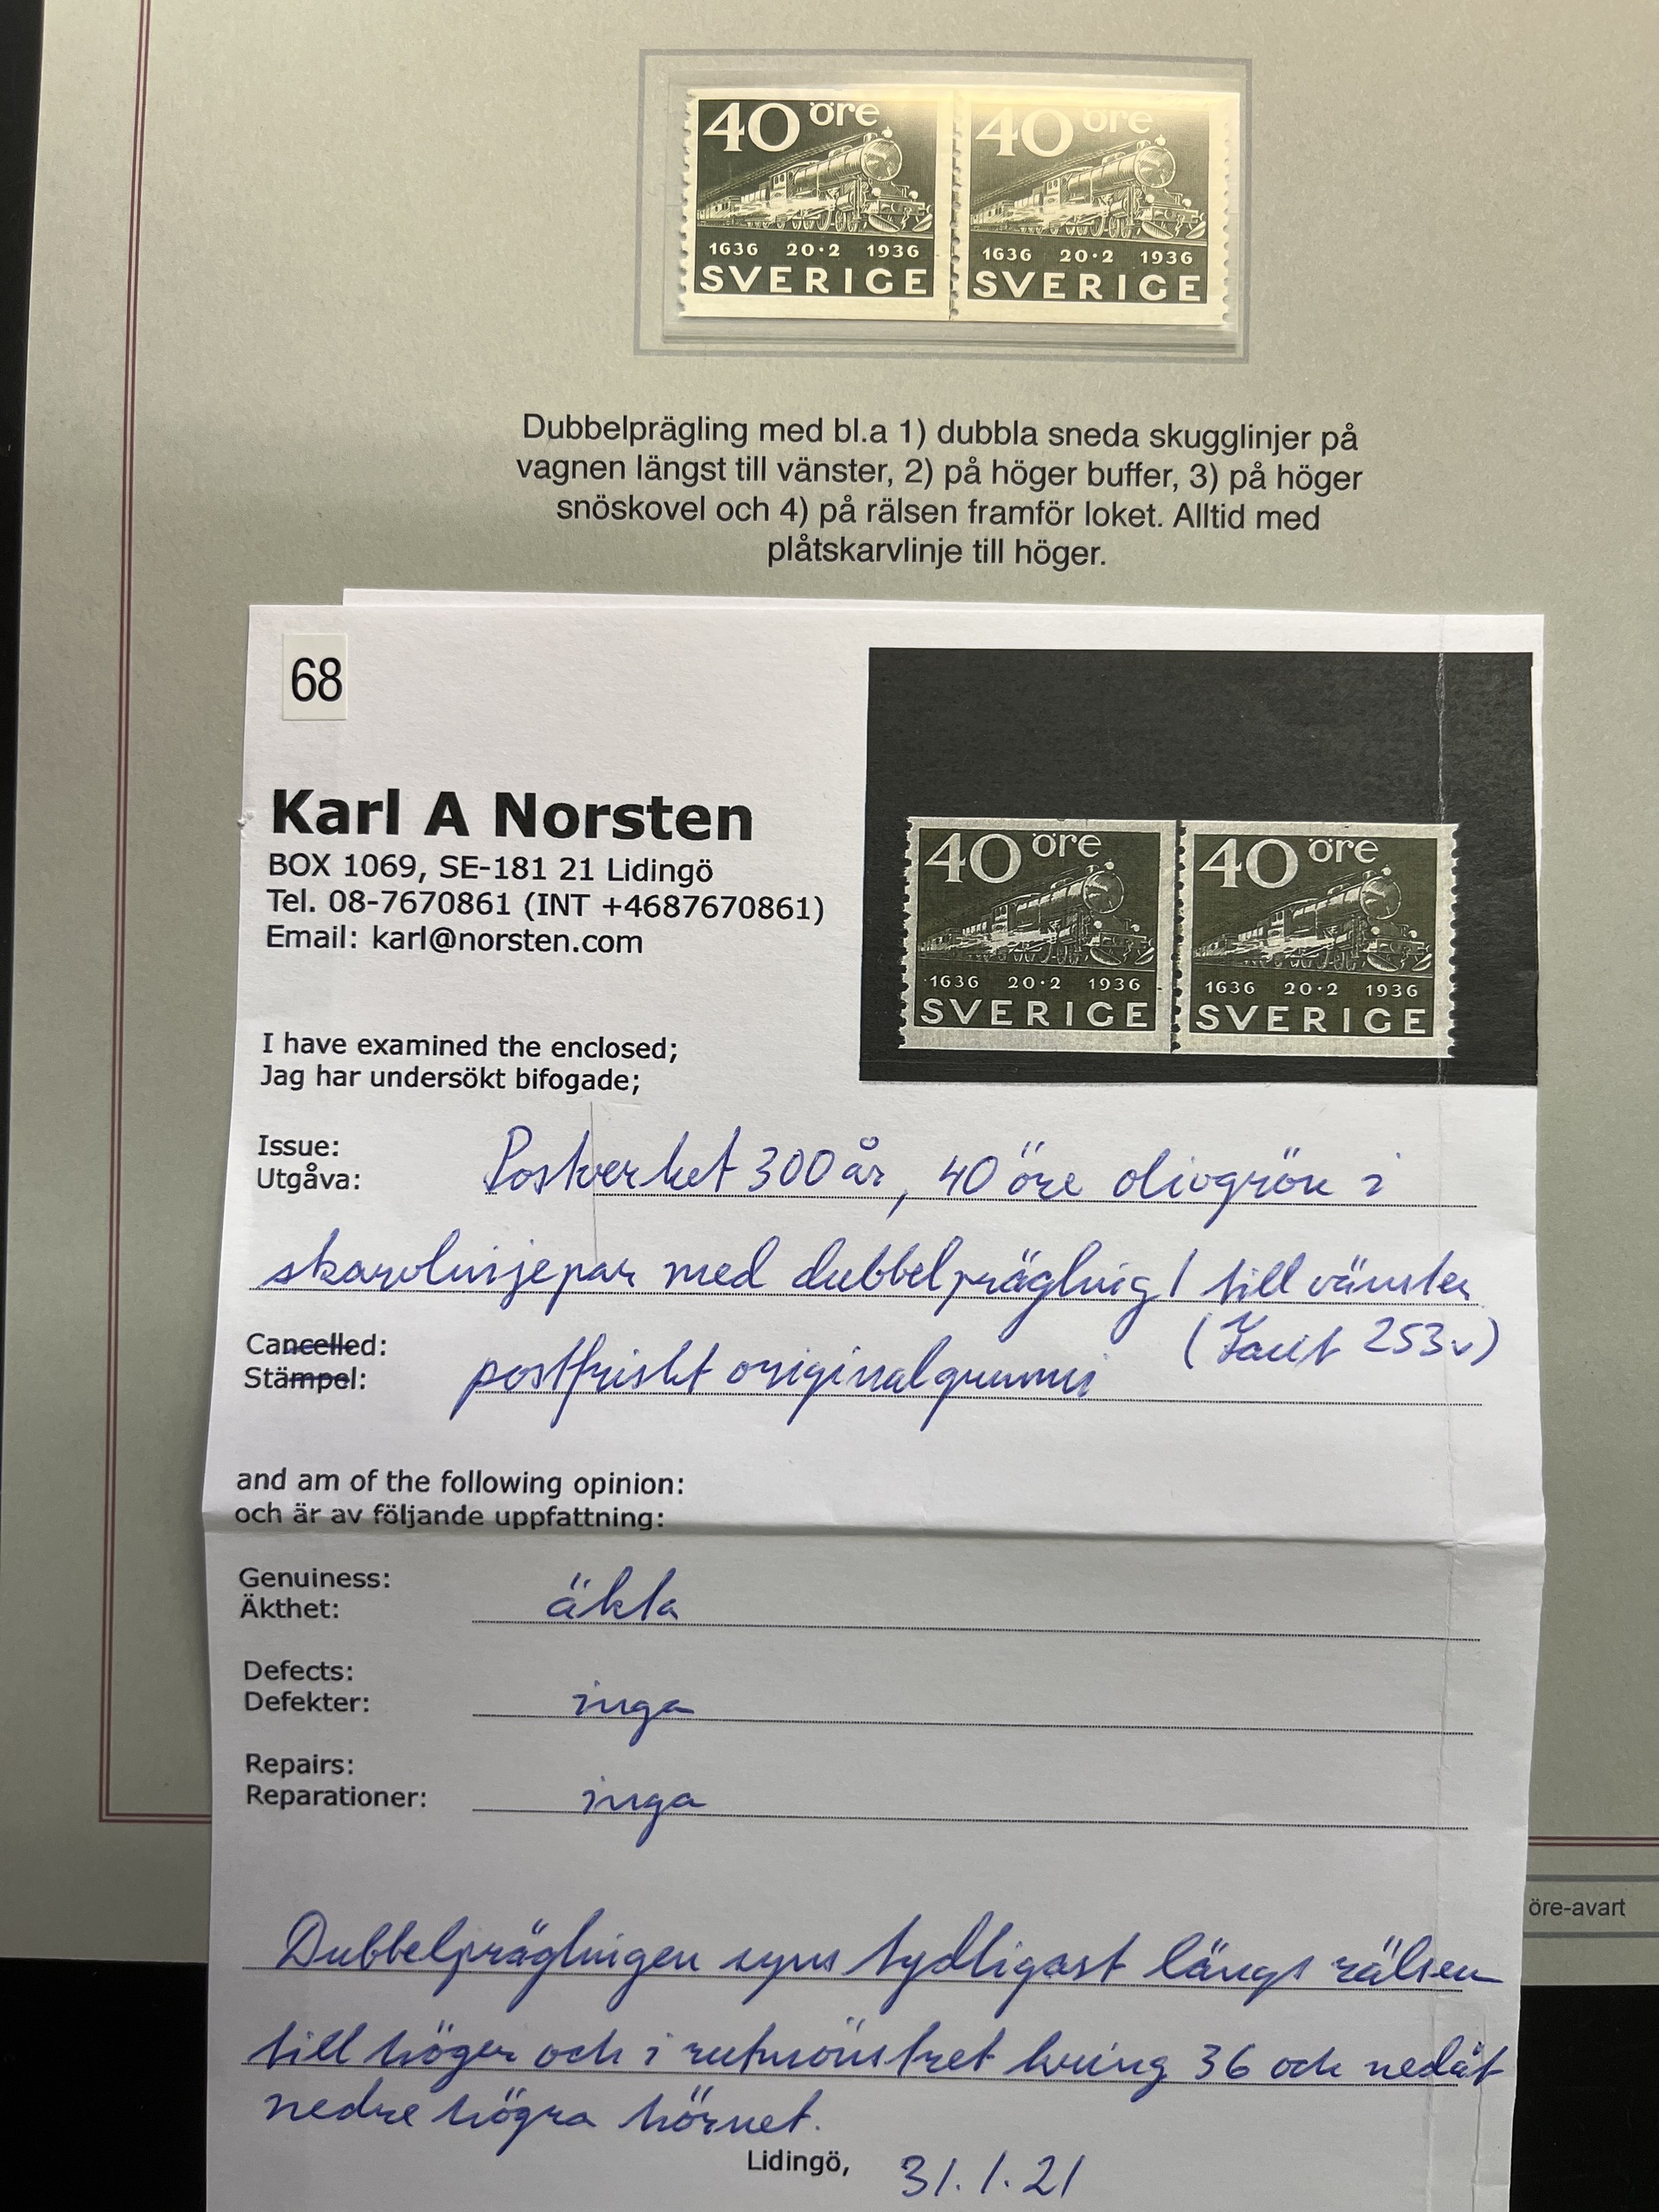 40 öre 40 öre
1636 20·2 1936 1636 20·2 1936
SVERIGE SVERIGE
Dubbelprägling med bl.a 1) dubbla sneda skugglinjer på
vagnen längst till vänster, 2) på höger buffer, 3) på höger
snöskovel och 4) på rälsen framför loket. Alltid med
plåtskarvlinje till höger.
68
Karl A Norsten
BOX 1069, SE-181 21 Lidingö
Tel. 08-7670861 (INT +4687670861)
Email: karl@norsten.com
40 öre 40 öre
1636 20·2 1936 1636 20·2 1936
SVERIGE SVERIGE
I have examined the enclosed;
Jag har undersökt bifogade;
Issue:
Utgåva: Postverket 300 år, 40 öre olivgrön i
skarvlinjepar med dubbelprägling 1 till vänster
(Facit 253v)
Cancelled:
Stämpel: postfriskt originalgummi
and am of the following opinion:
och är av följande uppfattning:
Genuiness:
Äkthet: äkta
Defects:
Defekter: inga
Repairs:
Reparationer: inga
öre-avart
Dubbelpräglingen syns tydligast längs rälsen
till höger och i rutmönstret kring 36 och nedåt
nedre högra hörnet.
Lidingö, 31.1.21